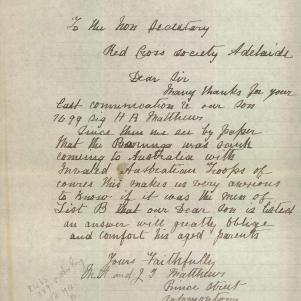 To the Hon Secretary
Red Cross Society Adelaide
Dear Sir
Many thanks for your
last communication re our Son
7099 Sig H A Matthews
Since then we see by paper
that the Barunga was sunk
coming to Australia with
Invalid Australian troops of
course this makes us very anxious
to know if it was the men of
List B that our Dear Son is listed
an answer will greatly oblige
and comfort his aged parents
Yours Faithfully
and J Matthews
Prince Street